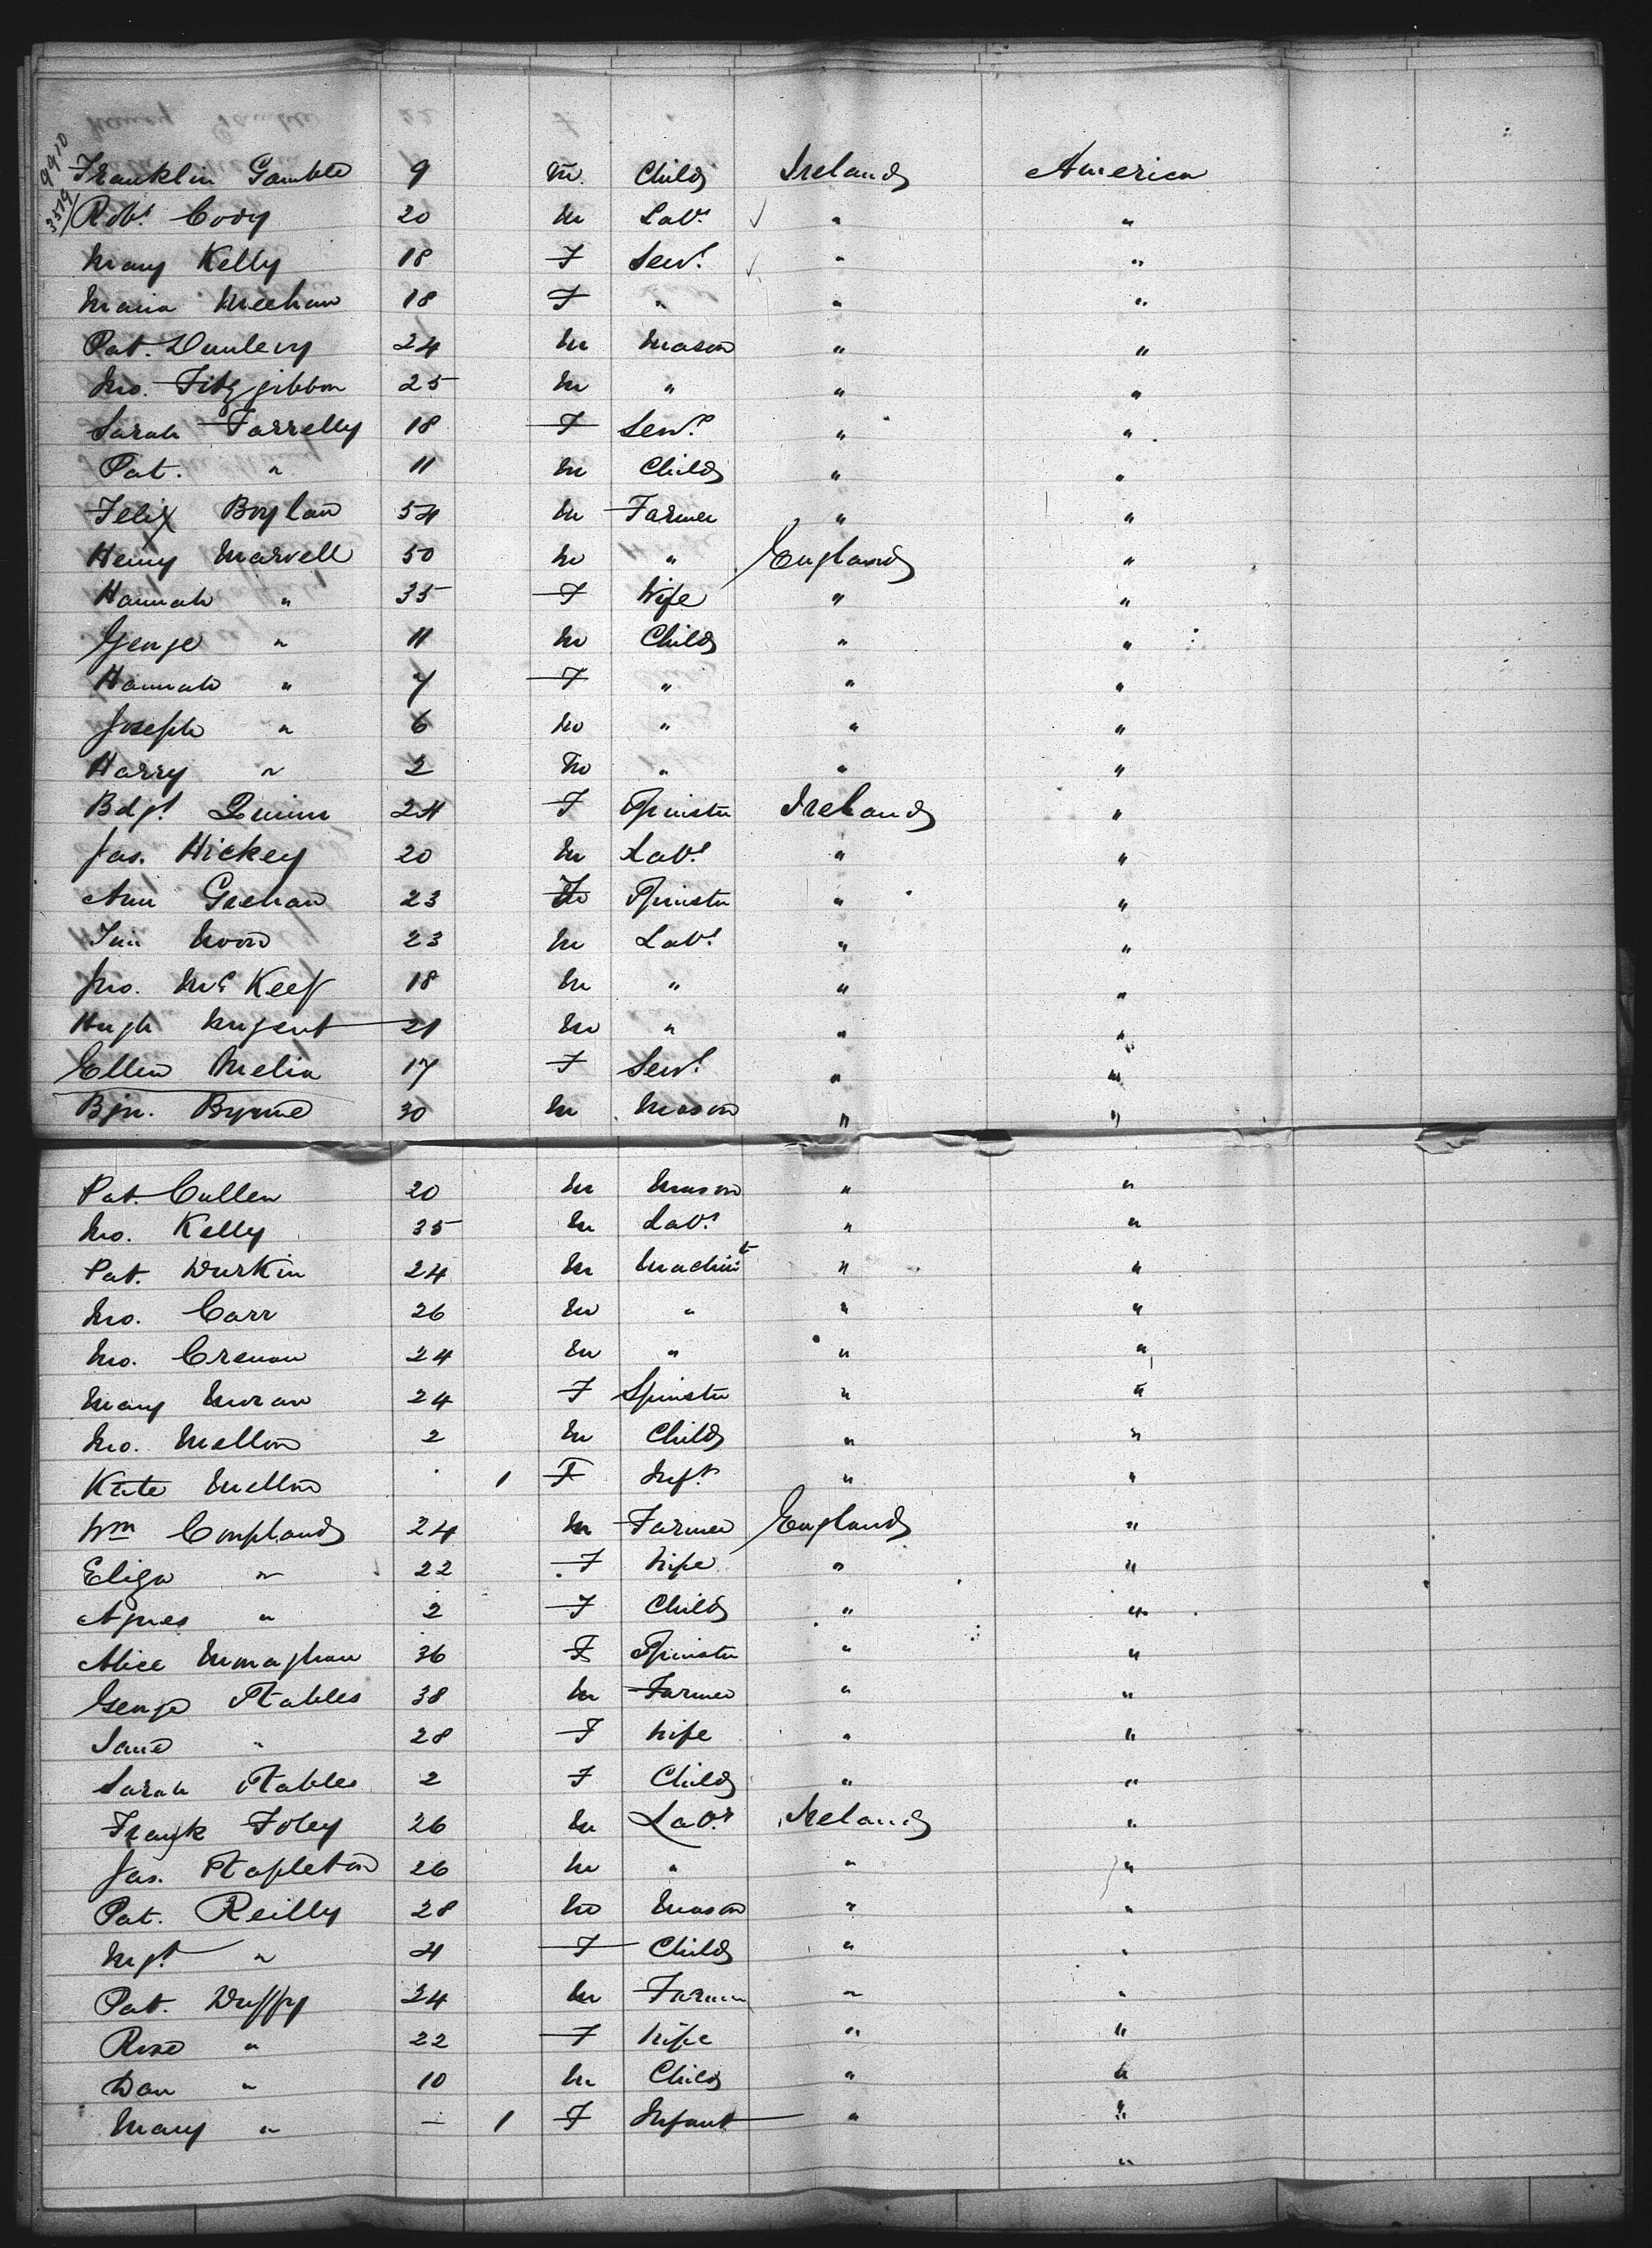 9910
3519/
Franklin Gamble 9 m. Child Ireland America
Robt Cody 20 m Labr " "
Mary Kelly 18 F Servt " "
Maria Meehan 18 F " " "
Pat. Dunlevy 24 m Mason " "
Jno. Fitzgibbon 25 m " " "
Sarah Farrelly 18 F Servt " "
Pat. " 11 m Child " "
Felix Boylan 54 m Farmer " "
Henry Marvell 50 m " England "
Hannah " 35 F Wife " "
George " 11 m Child " "
Hannah " 7 F " " "
Joseph " 6 m " " "
Harry " 2 m " " "
Bdgt Quinn 24 F Spinster Ireland "
Jas. Hickey 20 m Labr " "
Ann Geehan 23 F Spinster " "
Tim Moon 23 m Labr " "
Jno. McKeef 18 m " " "
Hugh Nugent 21 m " " "
Ellen Melia 17 F Servt " "
Bjn. Byrne 30 m Mason " "
Pat. Cullen 20 m Mason " "
Jno. Kelly 35 m Labr " "
Pat. Durkin 24 m Machinit " "
Jno. Carr 26 m " " "
Jno. Crenan 24 m " " "
Mary Moran 24 F Spinster " "
Jno. Mellon 2 m Child " "
Kate Mellon 1 F Inft " "
Wm Coupland 24 m Farmer England "
Eliza " 22 F Wife " "
Agnes " 2 F Child " "
Alice Monaghan 36 F Spinster " "
George Stables 38 m Farmer " "
Jane " 28 F Wife " "
Sarah Stables 2 F Child " "
Frank Foley 26 m Labr Ireland "
Jas. Stapleton 26 m " " "
Pat. Reilly 28 m Mason " "
Mgt " 4 F Child " "
Pat. Duffy 24 m Farmer " "
Rose " 22 F Wife " "
Dan " 10 m Child " "
Mary " — 1 F Infant " "
"